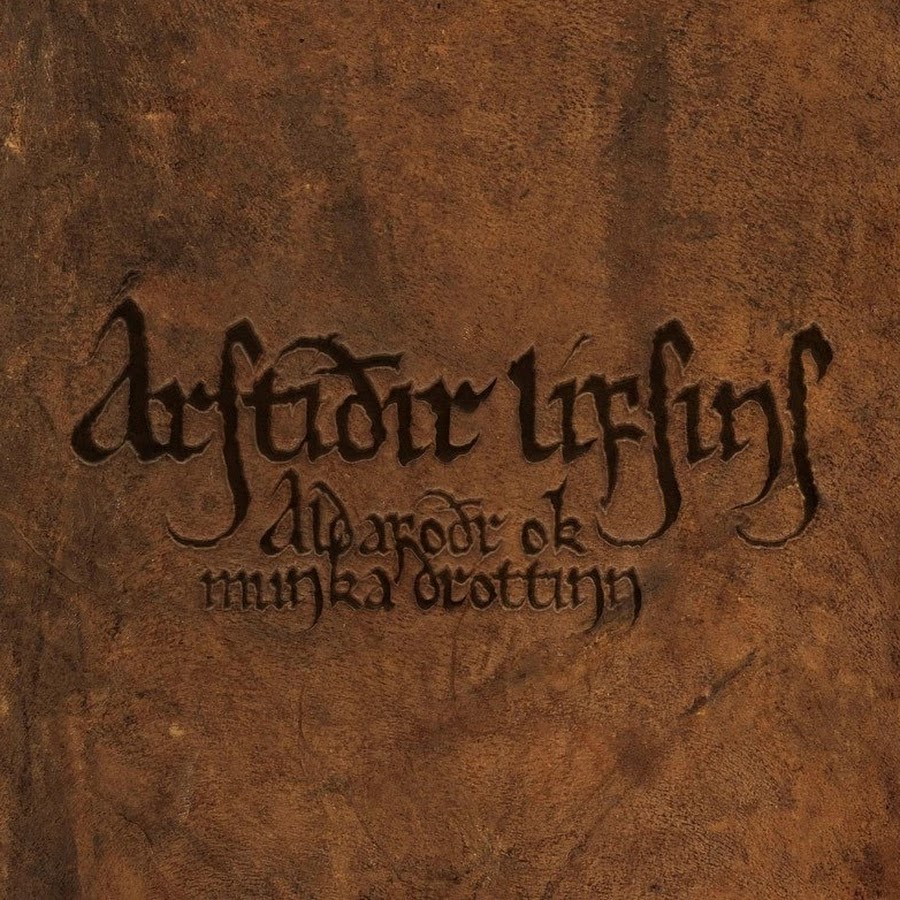 Árstíðir lífsins
Aldafǫðr ok
munka dróttinn